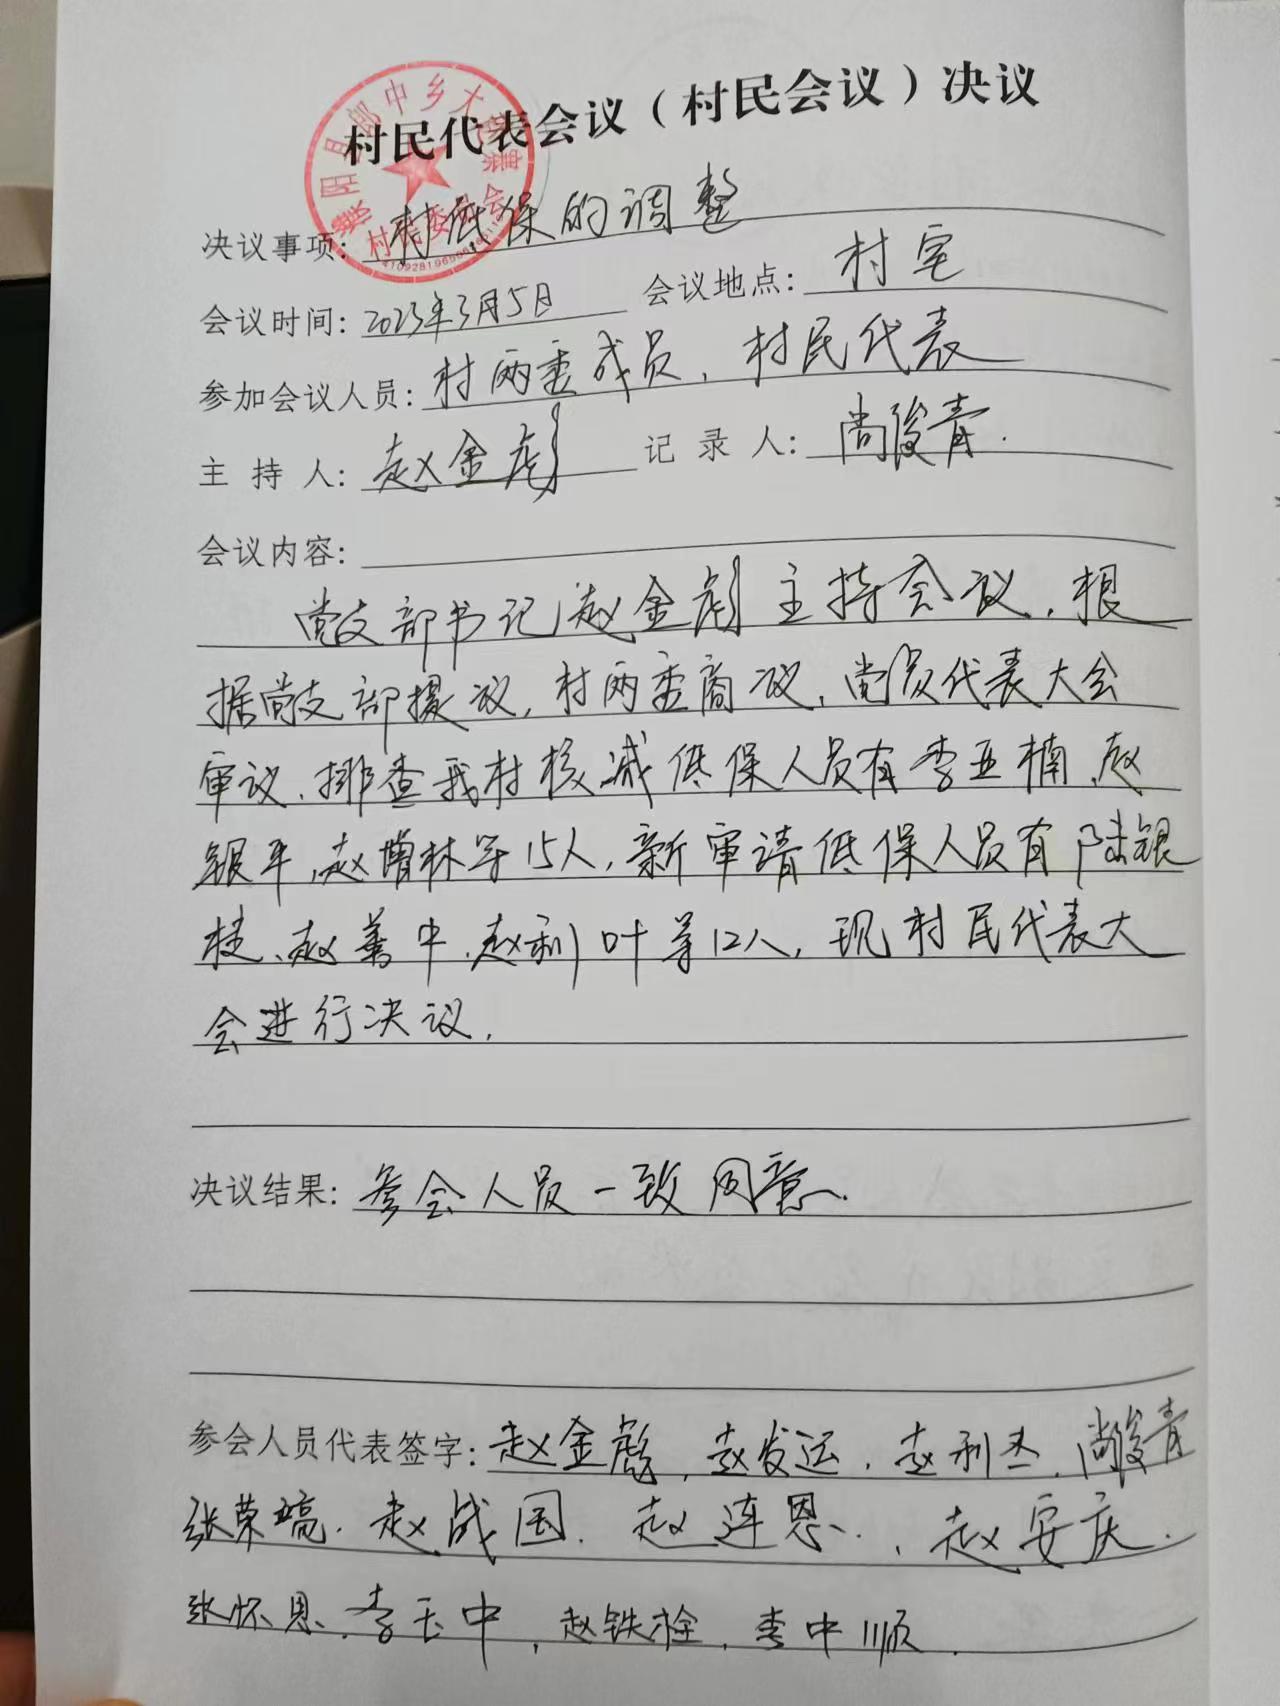 村民代表会议（村民会议）决议
决议事项：村低保的调整
会议时间：2023年3月5日 会议地点：村室
参加会议人员：村两委成员、村民代表
主持人：赵金彪 记录人：尚俊青
会议内容：
党支部书记赵金彪主持会议，根
据党支部提议，村两委商议，党员代表大会
审议、排查我村核减低保人员有李亚楠、赵
银平、赵增林等15人，新审请低保人员有陆银
桂、赵善中、赵利叶等12人，现村民代表大
会进行决议.
决议结果：参会人员一致同意.
参会人员代表签字：赵金彪、赵发运、赵利杰、尚俊青
张荣端、赵战国、赵连恩、赵安庆.
张怀恩、李玉中，赵铁栓，李中顺.